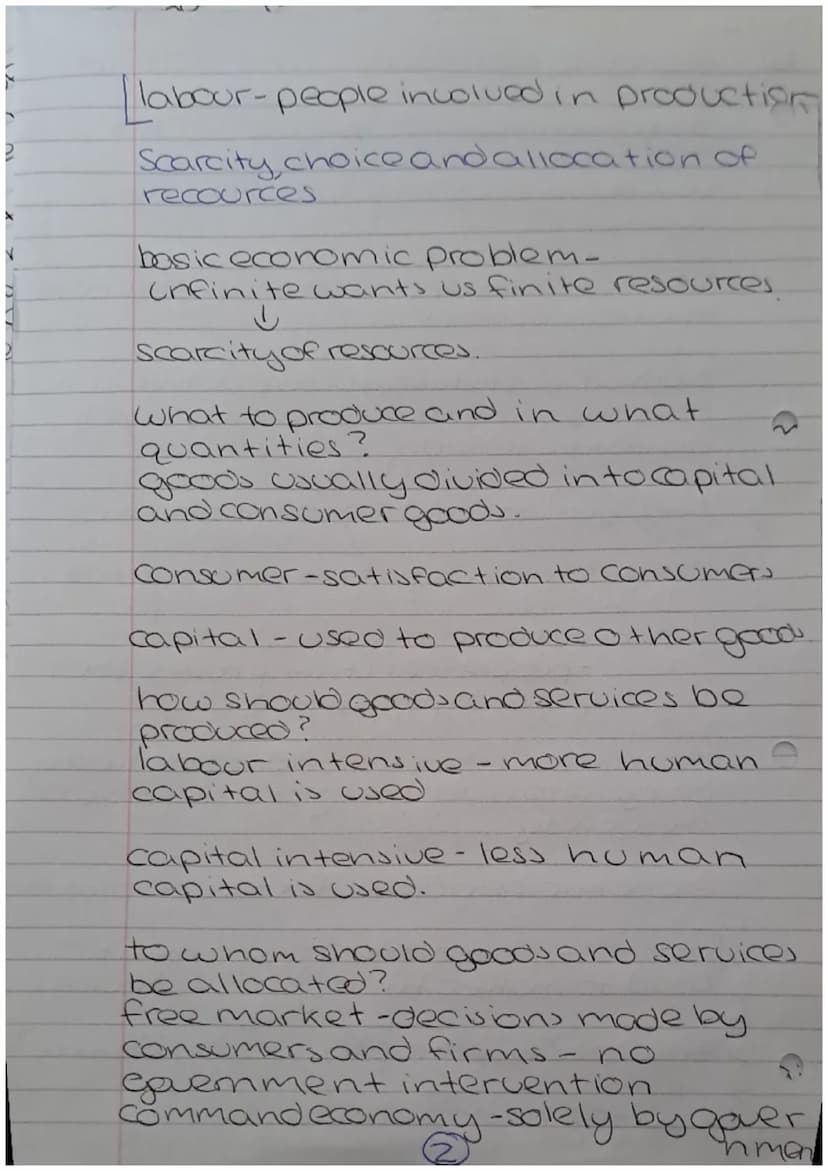 labour - people involved in production
Scarcity, choice and allocation of
recources
basic economic problem -
infinite wants vs finite resources.
scarcity of resources.
what to produce and in what
quantities?
goods usually divided into capital
and consumer goods.
consumer - satisfaction to consumers
capital - used to produce other goods
how should goods and services be
produced?
labour intensive - more human
capital is used
capital intensive - less human
capital is used.
to whom should goods and services
be allocated?
free market - decisions made by
consumers and firms - no
government intervention
command economy - solely by gover
nmen
2